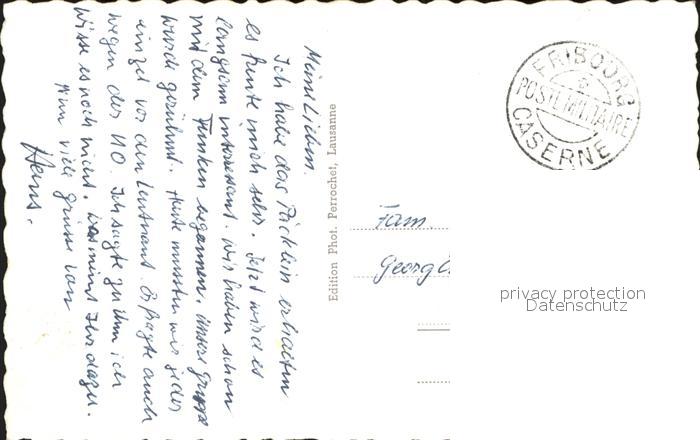 Meine Lieben.
Ich habe das Päcklein erhalten
es freute mich sehr. Jetzt wird es
langsam interessant. Wir haben schon
mit dem Funken begonnen, unsere Gruppe
wurde gerühmt. Heute mussten wir jeder
einzel vor den Leutnant. Er fragte auch
wegen der UO. Ich sagte zu ihm ich
wisse es noch nicht. Was meint Ihr dazu.
Nun viele Grüsse von
Hans.
Edition Phot. Perrochet, Lausanne
FRIBOURG
POSTE MILITAIRE
CASERNE
Fam.
Georg
privacy protection
Datenschutz